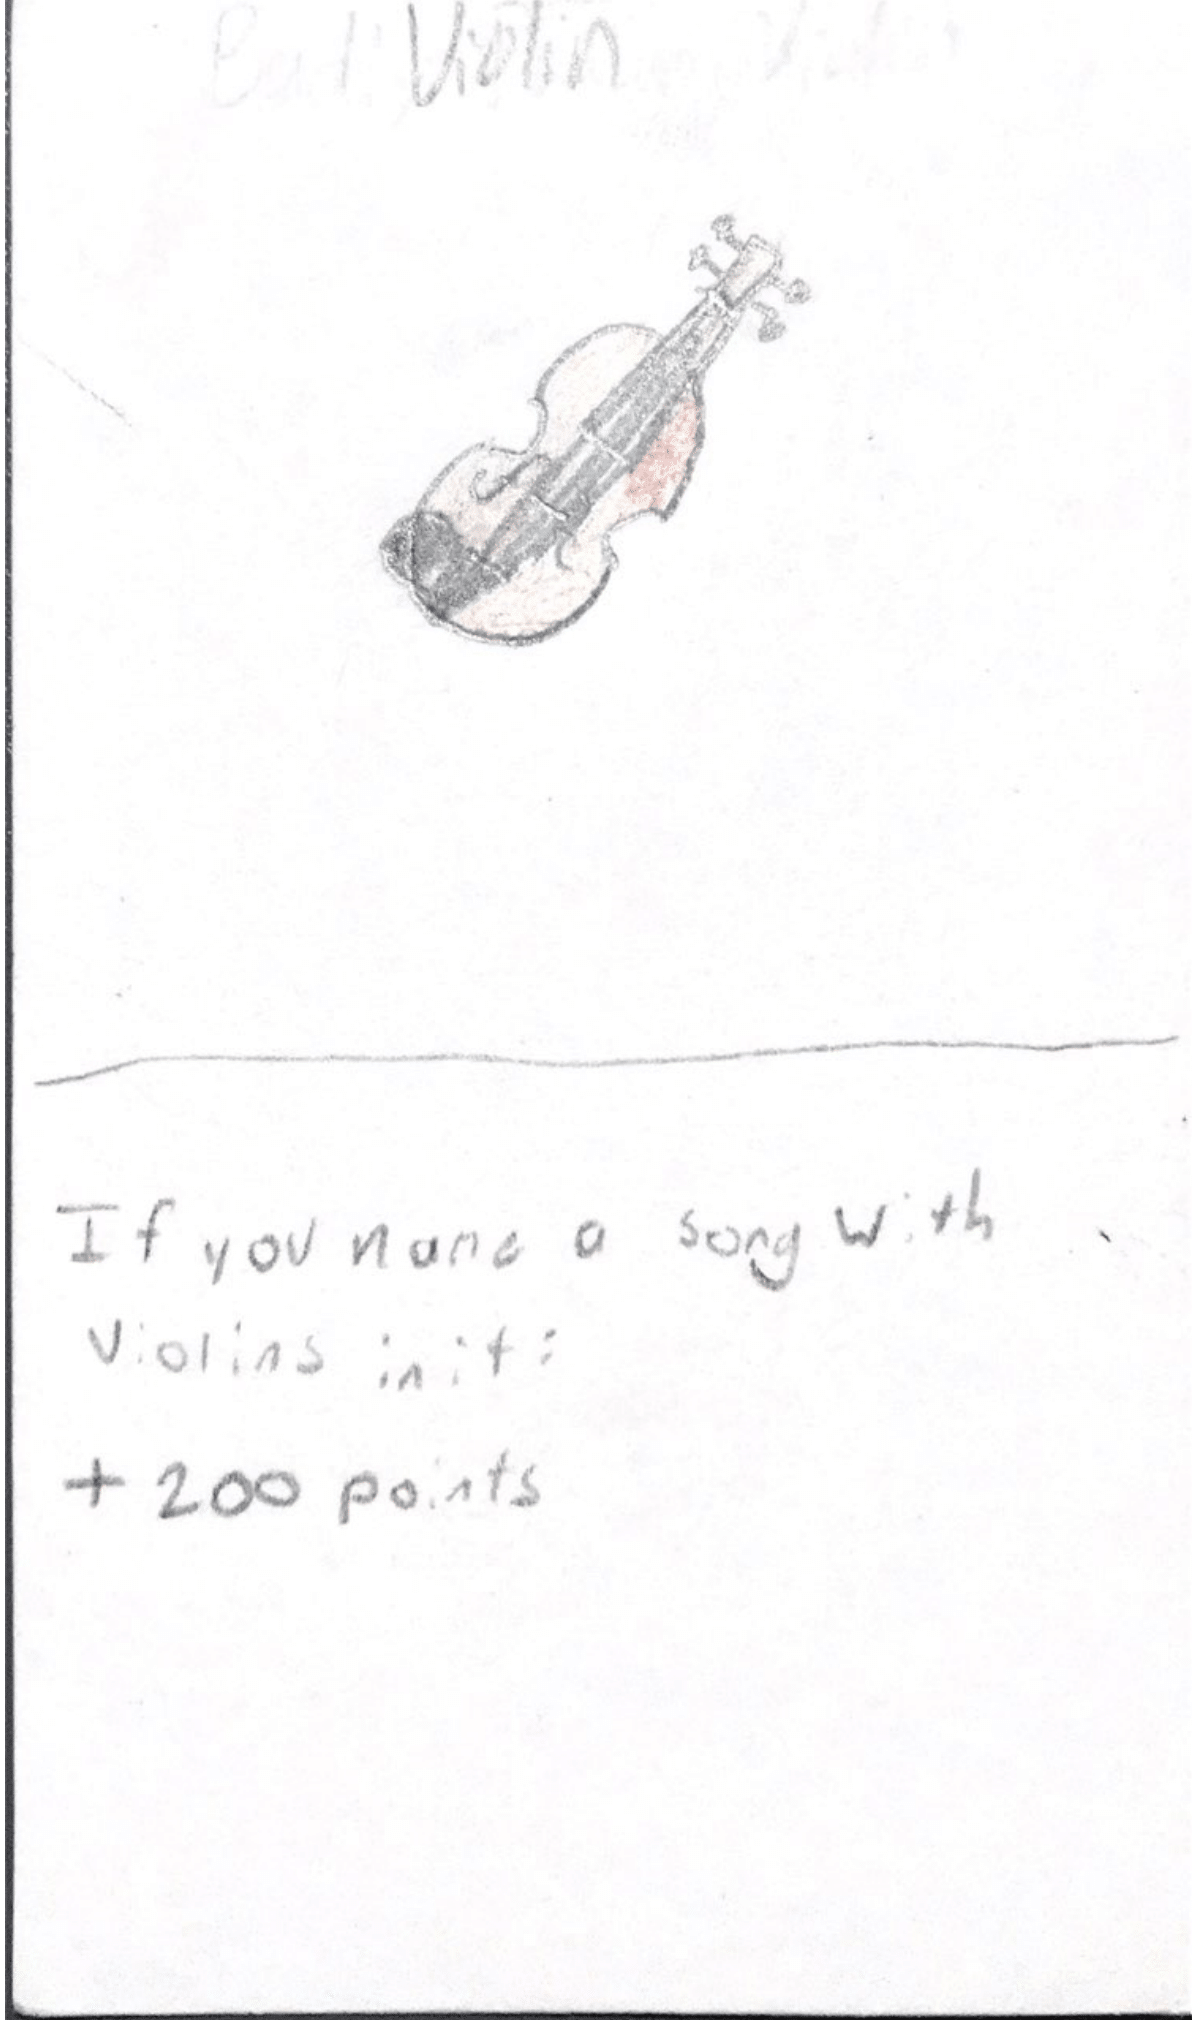 Violin
If you name a song with
Violins in it:
+ 200 points